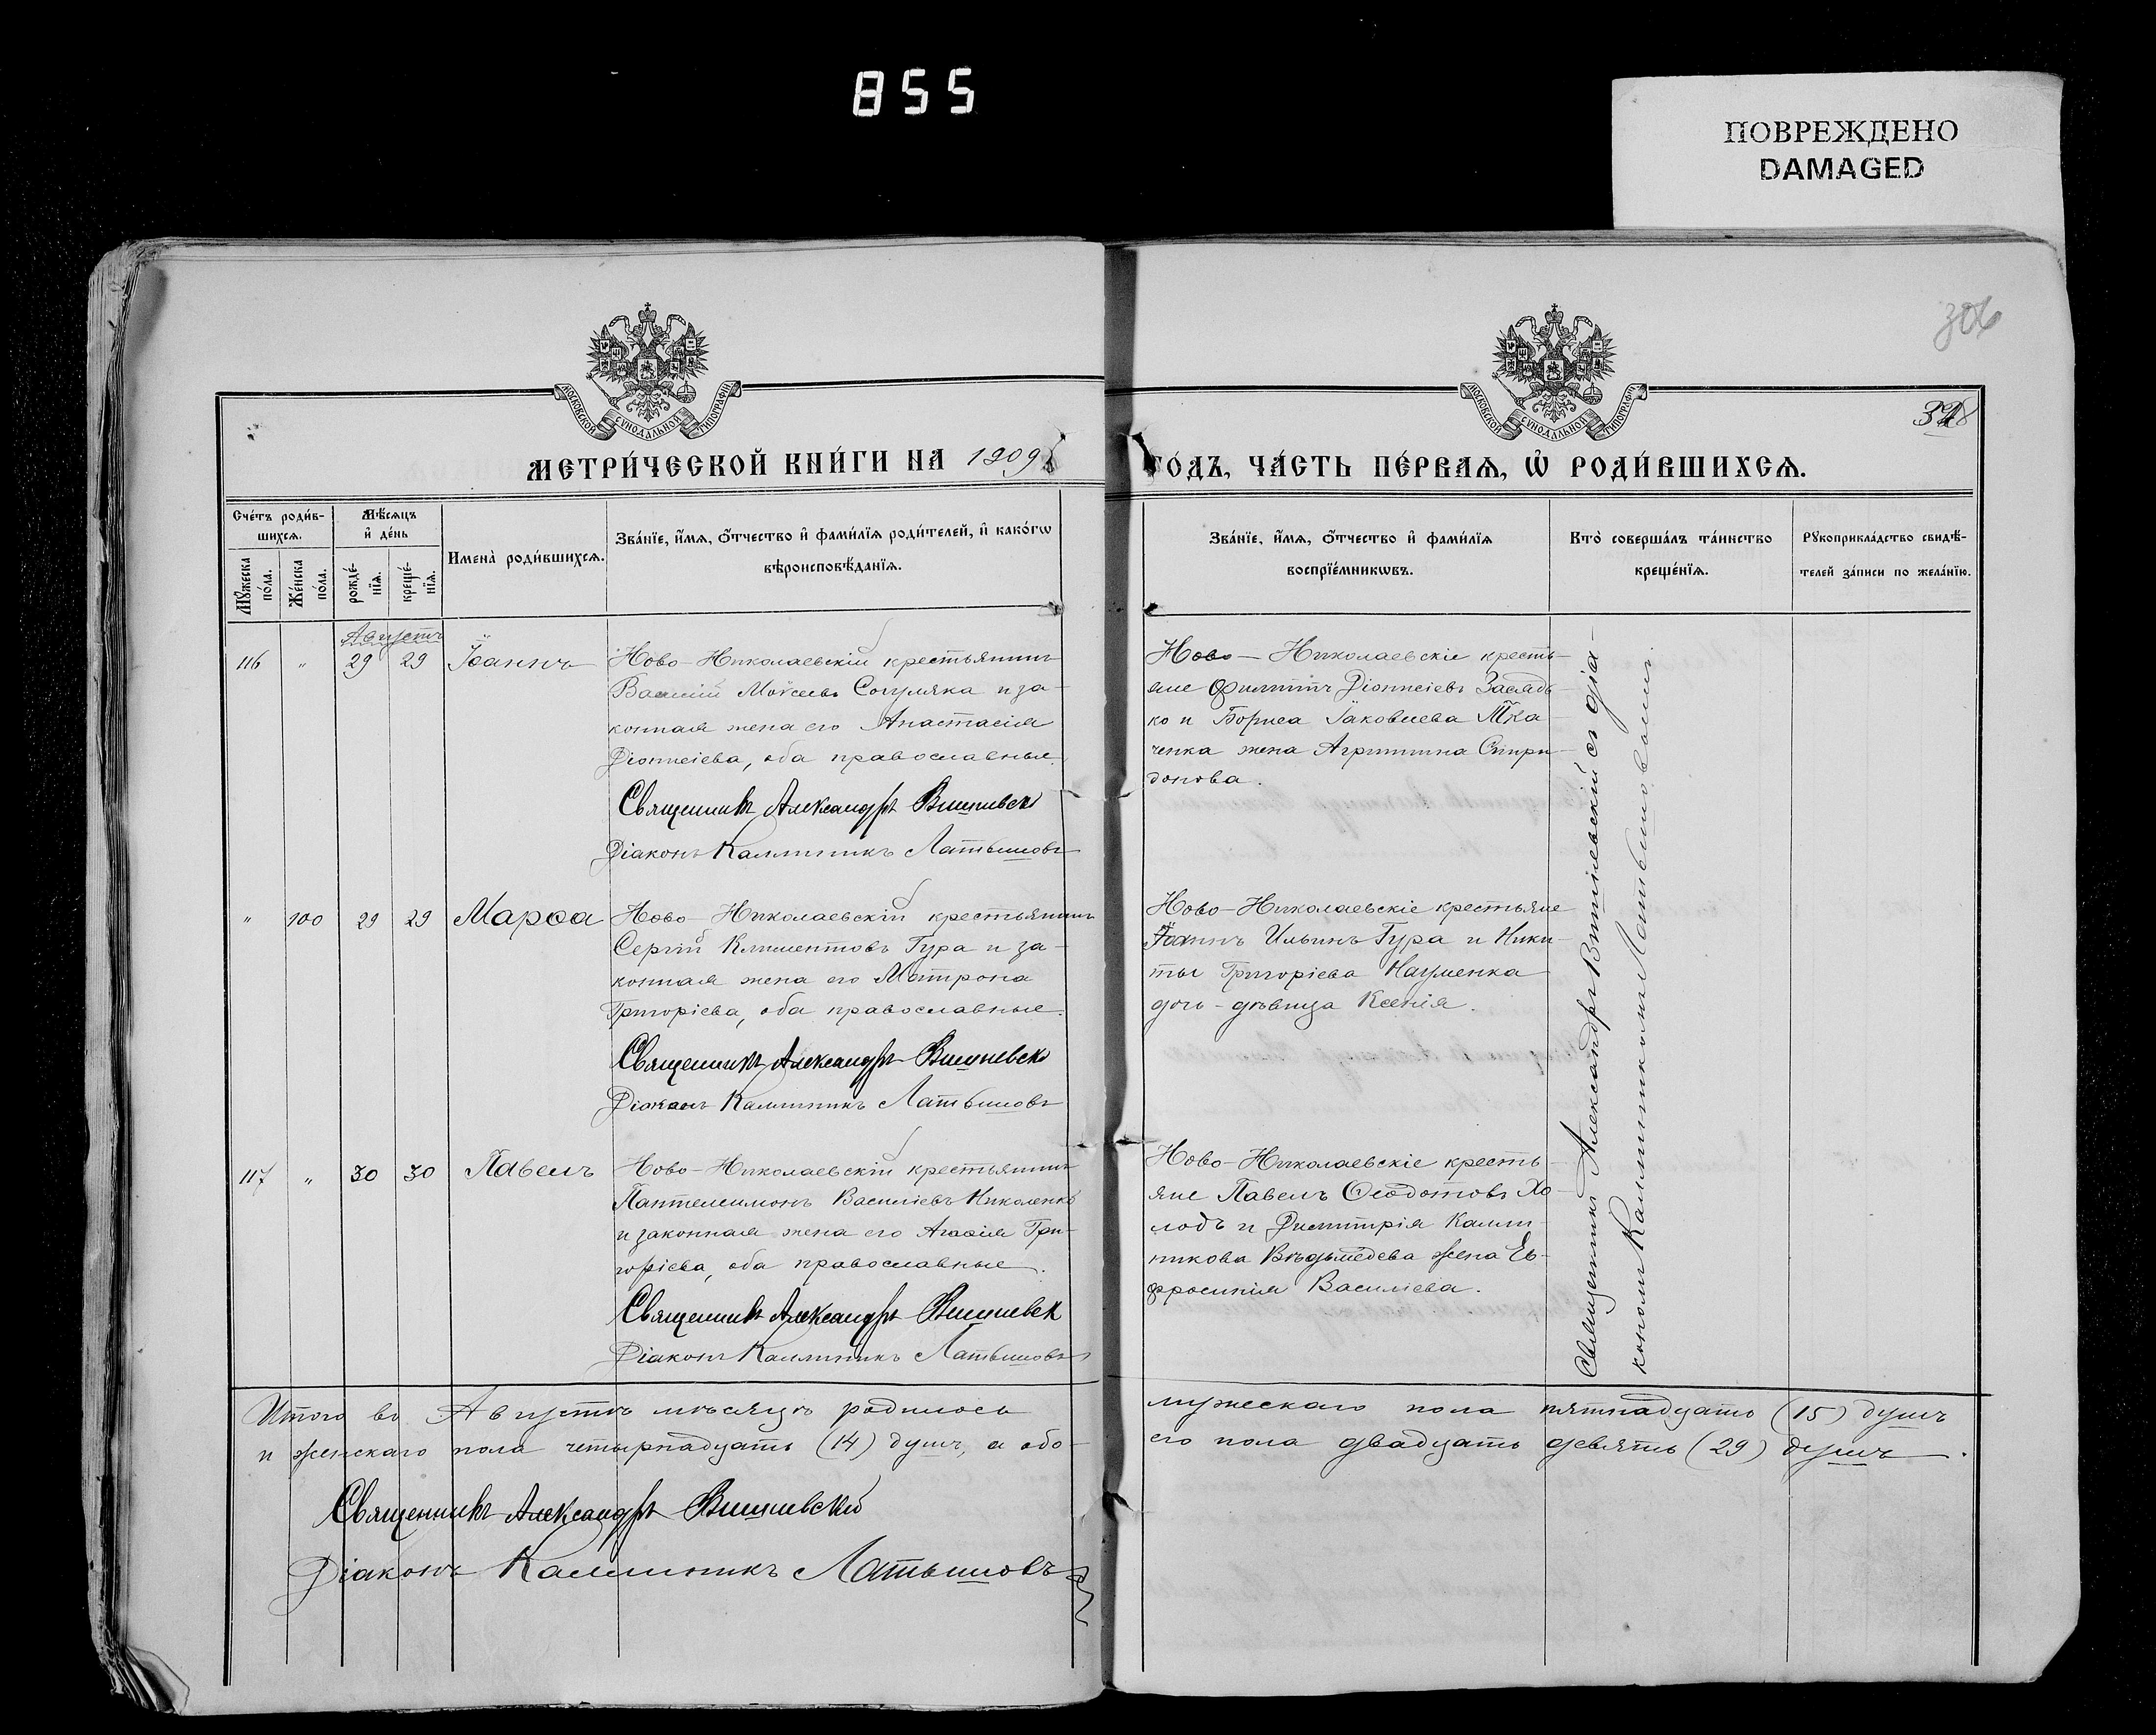 855
ПОВРЕЖДЕНО
DAMAGED
306
МОСКОВСКОЙ СѴНОДАЛЬНОЙ ТИПОГРАФІИ
МОСКОВСКОЙ СѴНОДАЛЬНОЙ ТИПОГРАФІИ
328
МЕТРИ́ЧЕСКОЙ КНИ́ГИ НА 1909
ГО́ДЪ, ЧА́СТЬ ПЕ́РВАѦ, Ѡ҆ РОДИ́ВШИХСѦ.
Сче́тъ роди́в-
шихсѧ.
Мѣ́сѧцъ
и҆ де́нь
Мꙋ́жеска
по́ла.
Же́нска
по́ла.
рожде́-
нїѧ.
креще́-
нїѧ.
Имена̀ роди́вшихсѧ.
Зва́нїе, и҆́мѧ, ѻ҆́тчество и҆ фами́лїѧ роди́телей, и҆ како́гѡ
вѣроисповѣ́данїѧ.
Зва́нїе, и҆́мѧ, ѻ҆́тчество и҆ фами́лїѧ
воспрїе́мникѡвъ.
Кто̀ соверша́лъ та́инство
креще́нїѧ.
Рꙋкоприкла́дство свидѣ́-
телей за́писи по жела́нїю.
Августъ
116 " 29 29 Іоаннъ
Ново-Николаевскій крестьянинъ
Василій Моѵсеевъ Согуляка и за-
конная жена его Анастасія
Діонисіева, оба православные.
Священникъ Александръ Вишневск
Діаконъ Каллиникъ Латышовъ
Ново-Николаевскіе кресть-
яне Филиппъ Діонисіевъ Засядь-
ко и Бориса Іаковлева Тка-
ченка жена Агриппина Спири-
донова.
" 100 29 29 Марѳа
Ново-Николаевскій крестьянинъ
Сергій Климентовъ Гура и за-
конная жена его Матрона
Григоріева, оба православные.
Священникъ Александръ Вишневск
Діаконъ Каллиникъ Латышовъ
Ново-Николаевскіе крестьяне
Іоаннъ Ильинъ Гура и Ники-
ты Григоріева Науменка
дочь-дѣвица Ксенія.
117 " 30 30 Павелъ
Ново-Николаевскій крестьянинъ
Пантелеимонъ Василіевъ Николенко
и законная жена его Агаѳія Гри-
горіева, оба православные.
Священникъ Александръ Вишневск
Діаконъ Каллиникъ Латышовъ
Ново-Николаевскіе кресть-
яне Павелъ Ѳеодотовъ Хо-
лодъ и Димитрія Калли-
никова Вѣдьмедева жена Ев-
фросинія Василіева.
Священникъ Александръ Вишневскій съ діа-
кономъ Каллиникомъ Латышовомъ.
Итого въ Августѣ мѣсяцѣ родилось
мужескаго пола пятнадцать (15) душъ
и женскаго пола четырнадцать (14) душъ, а обо-
его пола двадцать девять (29) душъ.
Священникъ Александръ Вишневскій
Діаконъ Каллиникъ Латышовъ